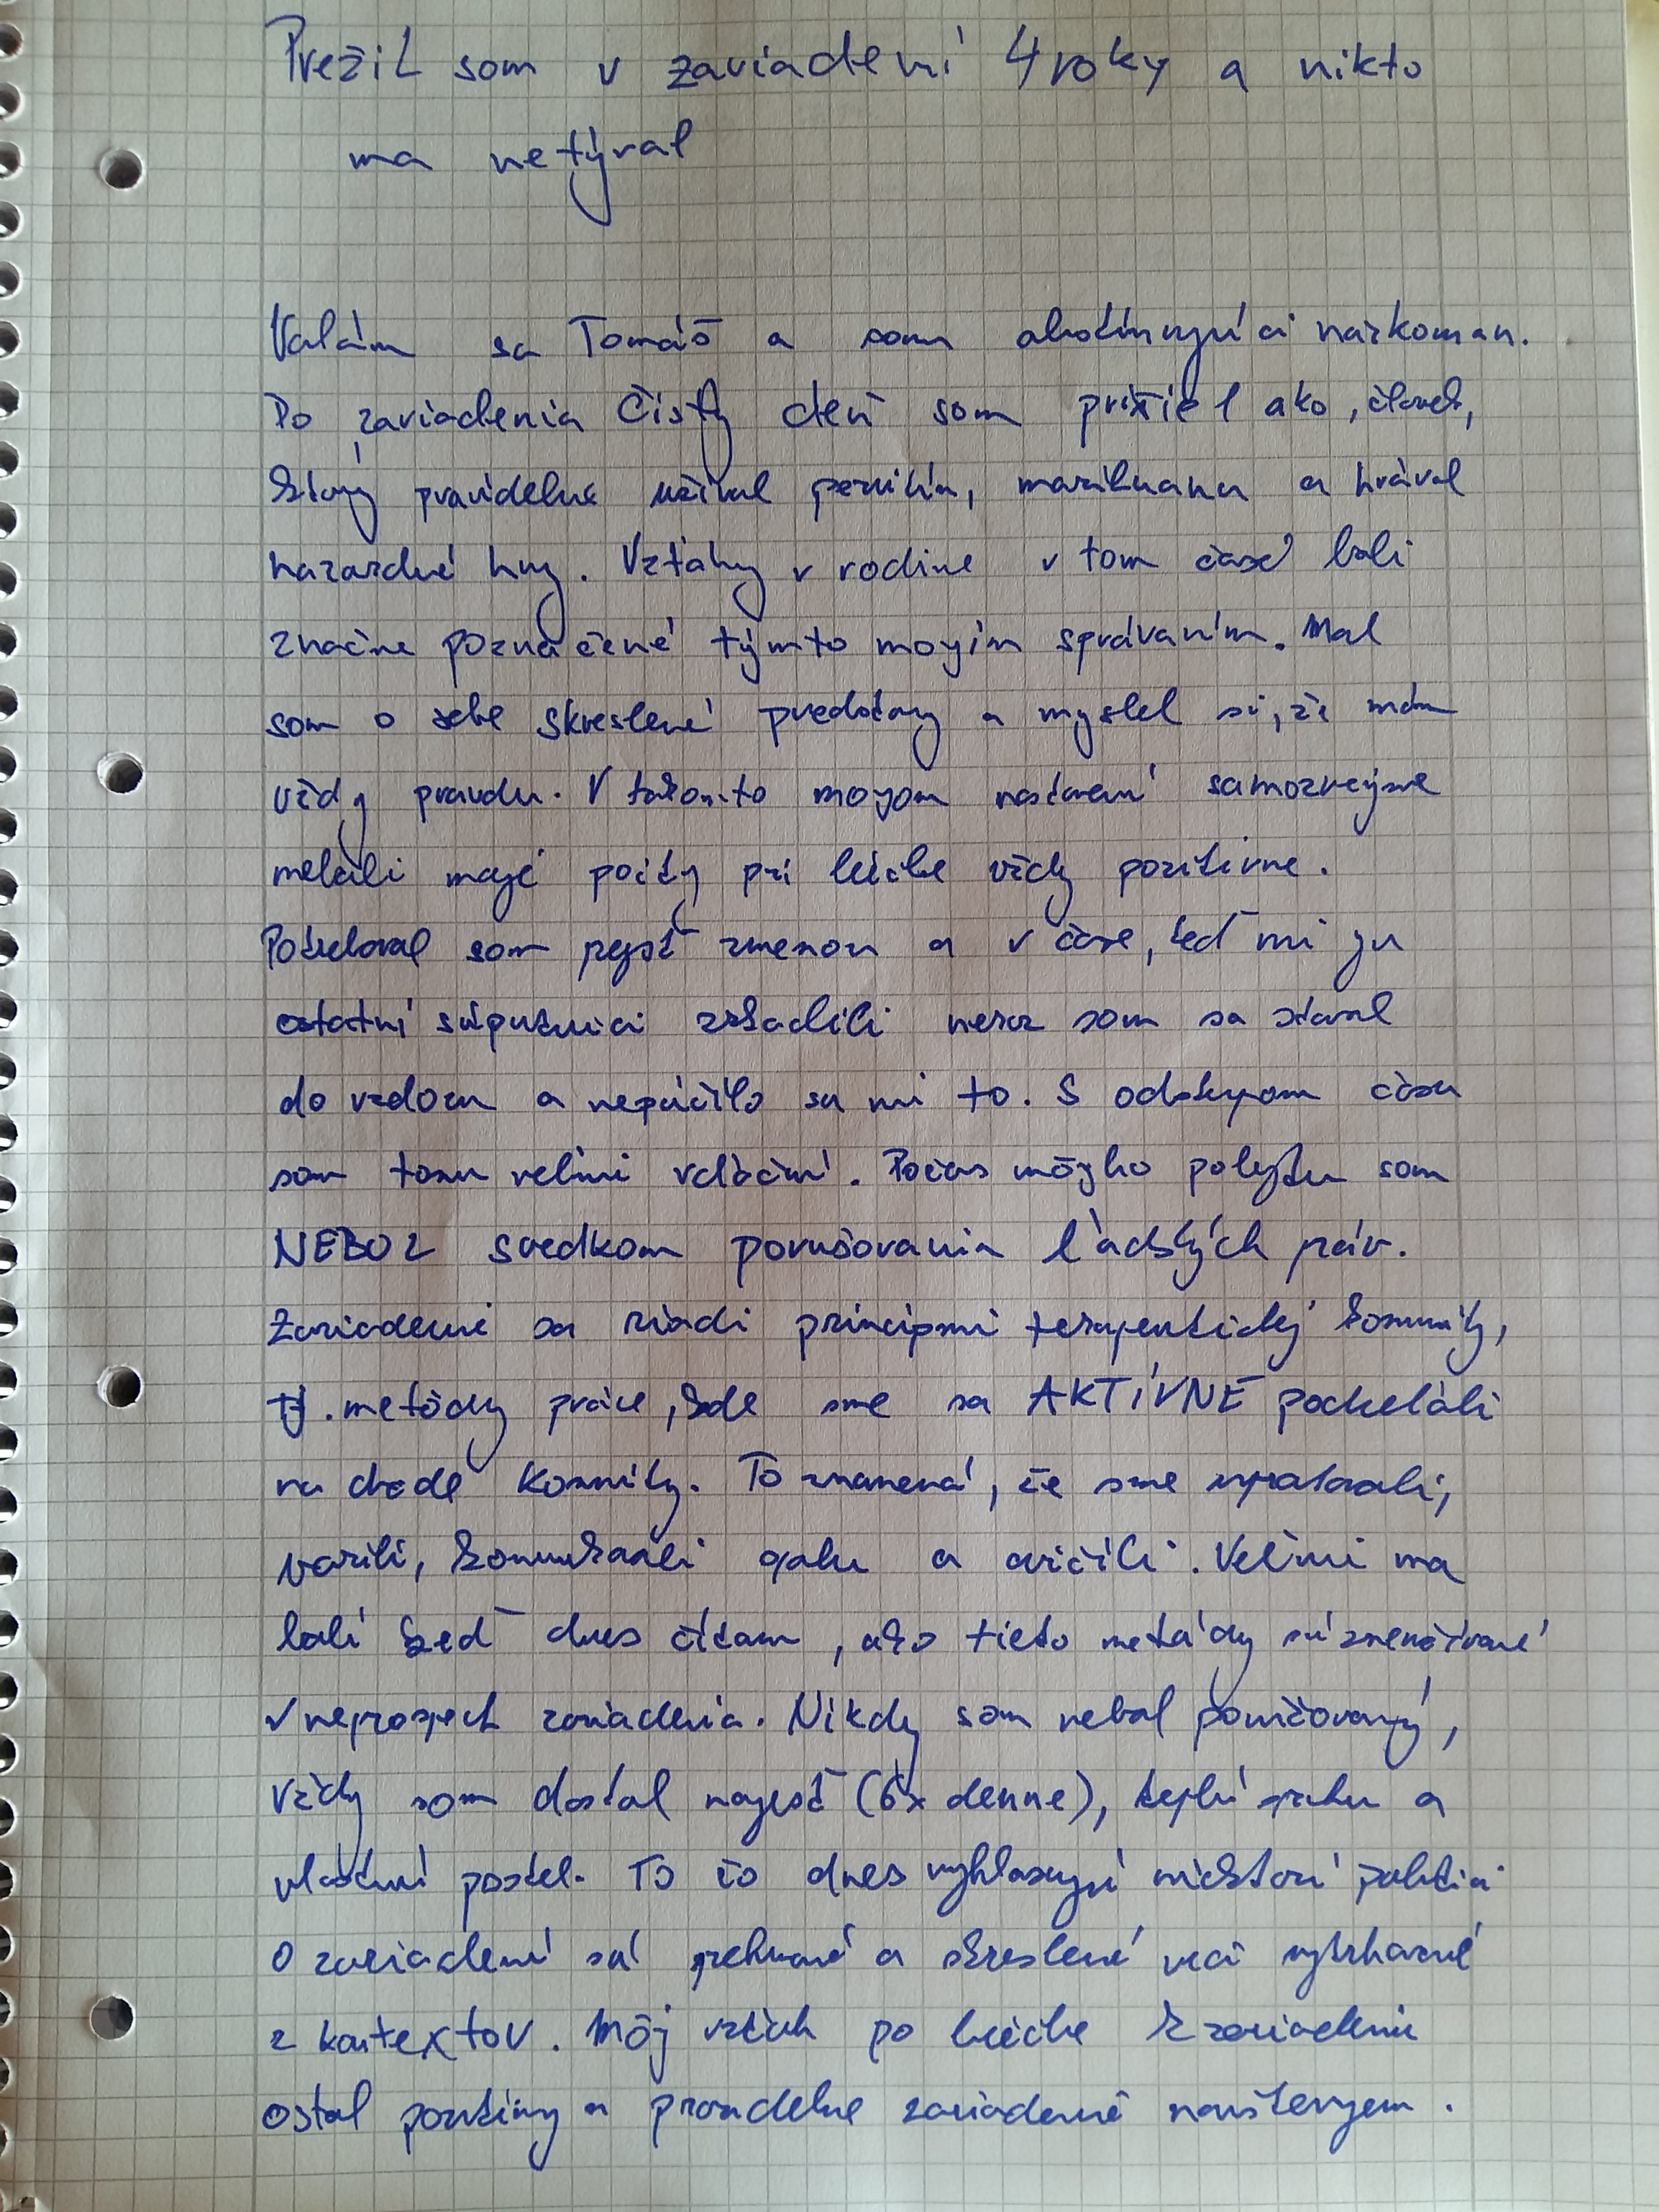 Prežil som v zariadení 4 roky a nikto
ma netýral
Volám sa Tomáš a som abstinujúci narkoman.
Do zariadenia Čistý deň som prišiel ako, človek,
ktorý pravidelne užíval pervitín, marihuanu a hrával
hazardné hry. Vzťahy v rodine v tom čase boli
značne poznačené týmto mojím správaním. Mal
som o sebe skreslené predstavy a myslel si, že mám
vždy pravdu. V takomto mojom nastavení samozrejme
neboli moje pocity pri liečbe vždy pozitívne.
Potreboval som prejsť zmenou a v čase, keď mi ju
ostatní súputníci zrkadlili neraz som sa staval
do vzdoru a nepáčilo sa mi to. S odstupom času
som tomu veľmi vďačný. Počas môjho pobytu som
NEBOL svedkom porušovania ľudských práv.
Zariadenie sa riadi princípmi terapeutickej komunity,
tj. metódy práce, kde sme sa AKTÍVNE podieľali
na chode komunity. To znamená, že sme upratovali,
varili, komunikovali spolu a cvičili. Veľmi ma
bolí keď dnes čítam, ako tieto metódy sú zneužívané
v neprospech zariadenia. Nikdy som nebol ponižovaný,
vždy som dostal najesť (6x denne), teplú sprchu a
vlastnú posteľ. To čo dnes vyhlasujú niektorí politici
o zariadení sú prehnané a skreslené veci vytrhané
z kontextov. Môj vzťah po liečbe k zariadeniu
ostal pozitívny a pravidelne zariadenie navštevujem.